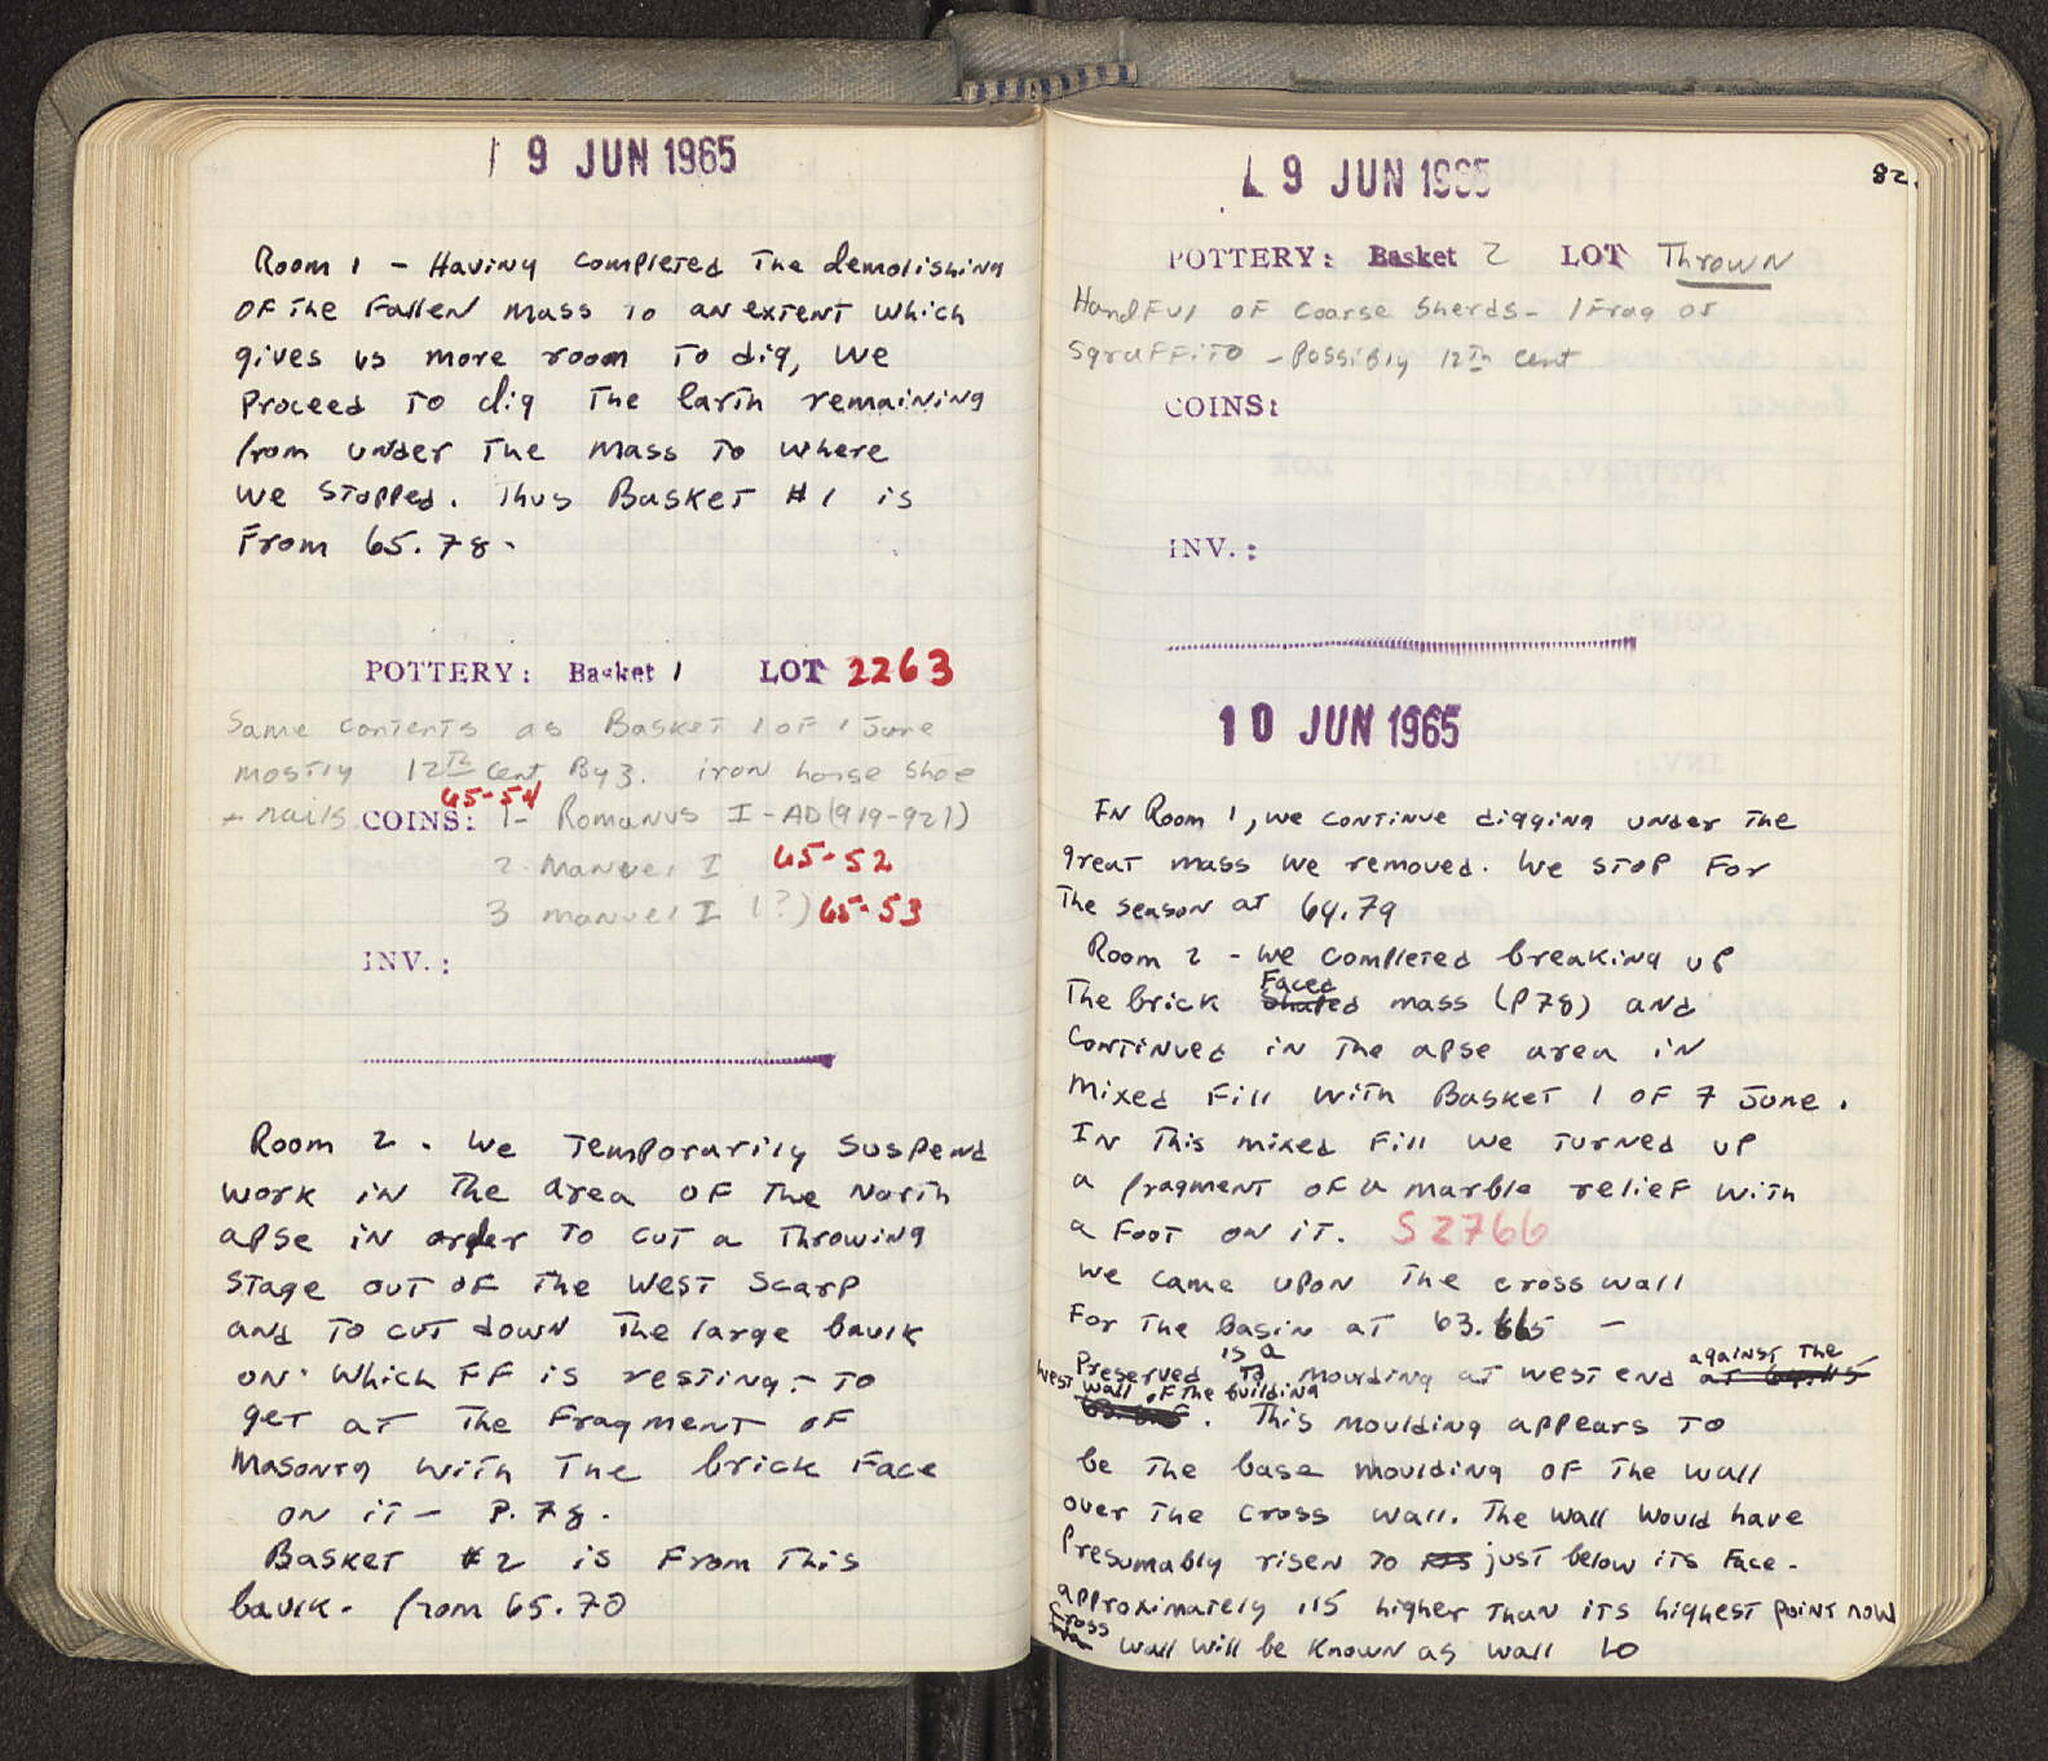 19 JUN 1965
Room 1 - Having completed the demolishing
of the fallen mass to an extent which
gives us more room to dig, we
proceed to dig the earth remaining
from under the mass to where
we stopped. Thus Basket #1 is
From 65.78.
POTTERY: Basket 1 LOT 2263
Same contents as Basket 1 of 1 June
mostly 12th cent Byz. iron horse shoe
+ nails.
65-54
COINS: 1- Romanus I - AD (919-921)
2. Manuel I 65-52
3 Manuel I (?) 65-53
INV.:
Room 2. We temporarily suspend
work in the area of the North
apse in order to cut a throwing
stage out of the West scarp
and to cut down the large baulk
on which FF is resting - to
get at the fragment of
masonry with the brick face
on it - P. 78.
Basket #2 is from this
baulk. from 65.70
19 JUN 1965
82.
POTTERY: Basket 2 LOT Thrown
Handful of coarse sherds - 1 frag of
sgraffito - possibly 12th cent
COINS:
INV.:
10 JUN 1965
In Room 1, we continue digging under the
great mass we removed. We stop for
the season at 64.79
Room 2 - we completed breaking up
Faced
the brick shaped mass (P78) and
continued in the apse area in
mixed fill with Basket 1 of 7 June.
In this mixed fill we turned up
a fragment of a marble relief with
a foot on it. S 2766
we came upon the cross wall
for the basin at 63.665 -
is a against the
Preserved moulding at west end
west wall of the building
. This moulding appears to
be the base moulding of the wall
over the cross wall. The wall would have
presumably risen to just below its face -
approximately .115 higher than its highest point now
Cross
wall will be known as wall 10